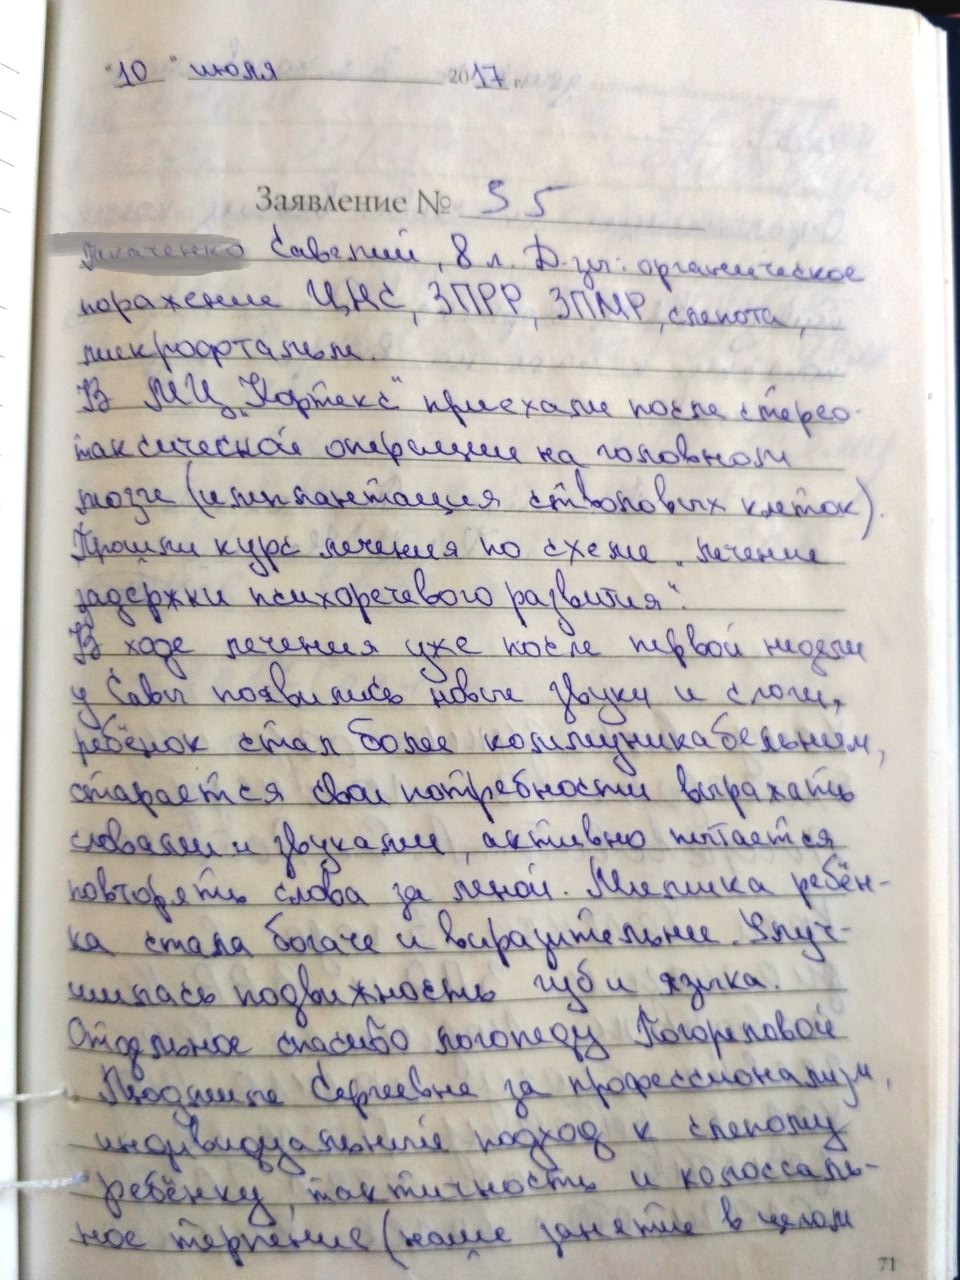 "10" июля 2017 г.
Заявление № 35
Савелий, 8 л. Д-зы: органическое
поражение ЦНС, ЗПРР, ЗПМР, слепота,
микрофтальм.
В МЦ "Кортекс" приехали после стерео-
таксической операции на головном
мозге (имплантация стволовых клеток).
Прошли курс лечения по схеме "лечение
задержки психоречевого развития".
В ходе лечения уже после первой недели
у Савы появились новые звуки и слоги,
ребёнок стал более коммуникабельным,
старается свои потребности выражать
словами и звуками, активно пытается
повторять слова за мной. Мимика ребён-
ка стала богаче и выразительнее. Улуч-
шилась подвижность губ и языка.
Отдельное спасибо логопеду Погореловой
Людмиле Сергеевне за профессионализм,
индивидуальный подход к слепому
ребёнку, тактичность и колоссаль-
ное терпение (наше занятие в целом
71